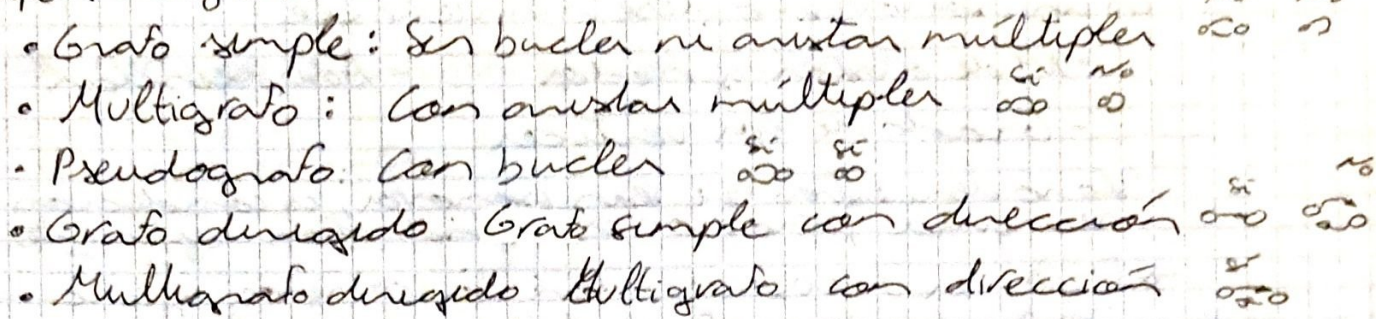 • Grafo simple: Sin bucles ni aristas múltiples
Sí No
• Multigrafo: Con aristas múltiples
Sí Sí
• Pseudografo. Con bucles
Sí No
• Grafo dirigido: Grafo simple con dirección
Sí
• Multigrafo dirigido Multigrafo con dirección